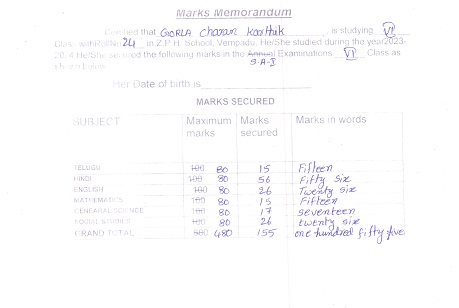 Marks Memorandum
Certified that GORLA Charan Karthik is studying VI
Class with Roll No 24 in Z.P.H. School, Vempadu. He/She studied during the year 2023-
20 4 He/She secured the following marks in the Annual Examinations VI Class as
S-A-I
shown below
Her Date of birth is
MARKS SECURED
SUBJECT Maximum marks Marks secured Marks in words
TELUGU 100 80 15 Fifteen
HINDI 100 80 56 Fifty six
ENGLISH 100 80 26 Twenty six
MATHEMATICS 100 80 15 Fifteen
GENEARAL SCIENCE 100 80 17 seventeen
SOCIAL STUDIES 100 80 26 twenty six
GRAND TOTAL 600 480 155 one hundred fifty five